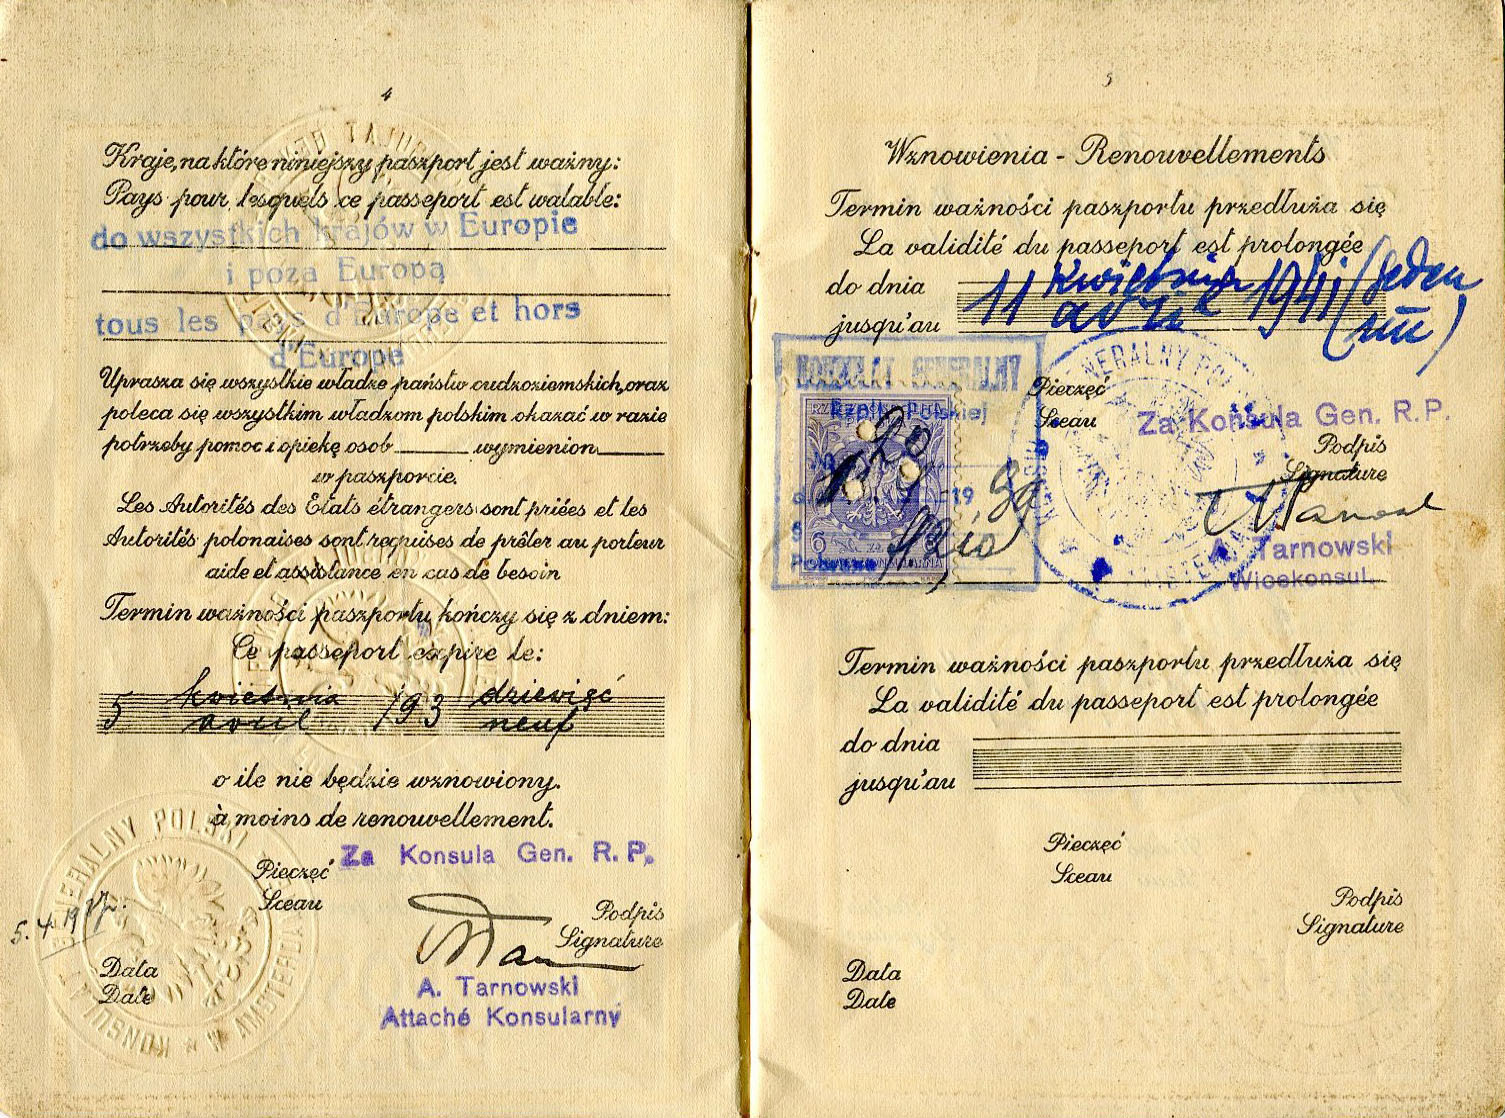 4
Kraje, na które niniejszy paszport jest ważny:
Pays pour lesquels ce passeport est walable:
do wszystkich krajów w Europie
i poza Europą
tous les pays d'Europe et hors
d'Europe
Uprasza się wszystkie władze państw cudzoziemskich, oraz
poleca się wszystkim władzom polskim okazać w razie
potrzeby pomoc i opiekę osob______ wymienion______
w paszporcie.
Les Autorités des Etats étrangers sont priées et les
Autorités polonaises sont requises de prêter au porteur
aide et assistance en cas de besoin
Termin ważności paszportu kończy się z dniem:
Ce passeport expire le:
5 kwietnia 193 dziewięć
avril neuf
o ile nie będzie wznowiony.
à moins de renouvellement.
Pieczęć
Sceau
Za Konsula Gen. R. P.
Podpis
Signature
5.4.1937.
Data
Date
A. Tarnowski
Attaché Konsularny
KONSULAT GENERALNY POLSKI W AMSTERDA
5
Wznowienia - Renouvellements
Termin ważności paszportu przedłuża się
La validité du passeport est prolongée
do dnia
jusqu'au
11 kwietnia 1941 (jeden
avril
Pieczęć
Sceau
KONSULAT GENERALNY
Rzplitej Polskiej
6
GENERALNY
Za Konsula Gen. R. P.
Podpis
Signature
A. Tarnowski
Wicekonsul.
Termin ważności paszportu przedłuża się
La validité du passeport est prolongée
do dnia
jusqu'au
Pieczęć
Sceau
Podpis
Signature
Data
Date